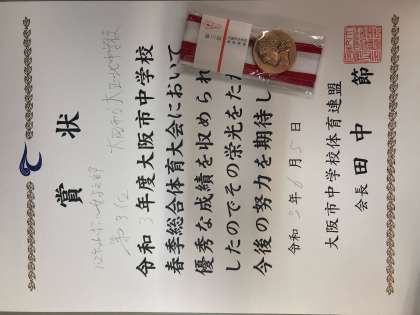 賞状
女子の部
第3位
大阪市立大正北中学校
令和3年度大阪市中学校
春季総合体育大会において
優秀な成績を収められ
したのでその栄光をた
今後の努力を期待し
令和3年6月5日
大阪市中学校体育連盟
会長 田中 節